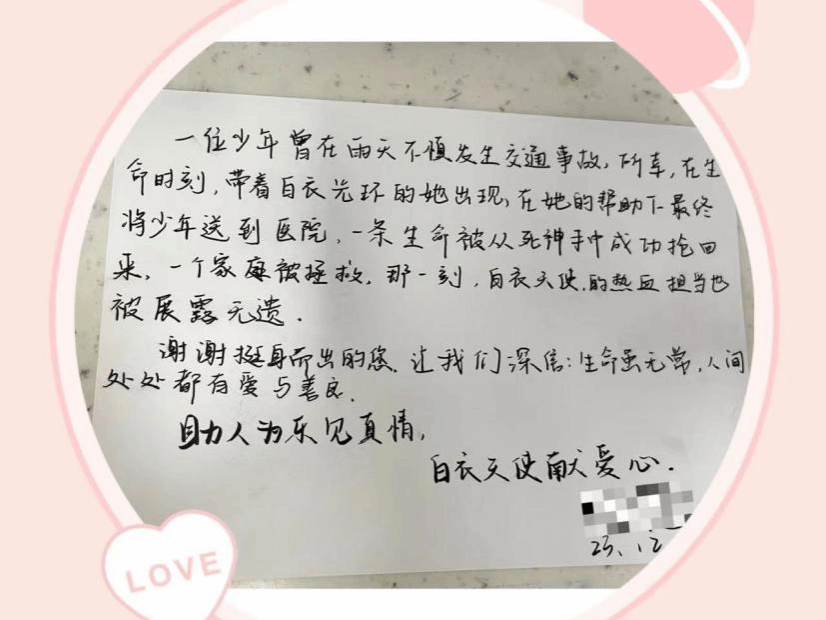 一位少年曾在雨天不慎发生交通事故,所幸,在生
命时刻,带着白衣光环的她出现,在她的帮助下最终
将少年送到医院,一条生命被从死神手中成功抢回
来,一个家庭被拯救,那一刻,白衣天使的热血担当也
被展露无遗.
谢谢挺身而出的您.让我们深信:生命虽无常,人间
处处都有爱与善良.
助人为乐见真情,
白衣天使献爱心.
23.12
LOVE